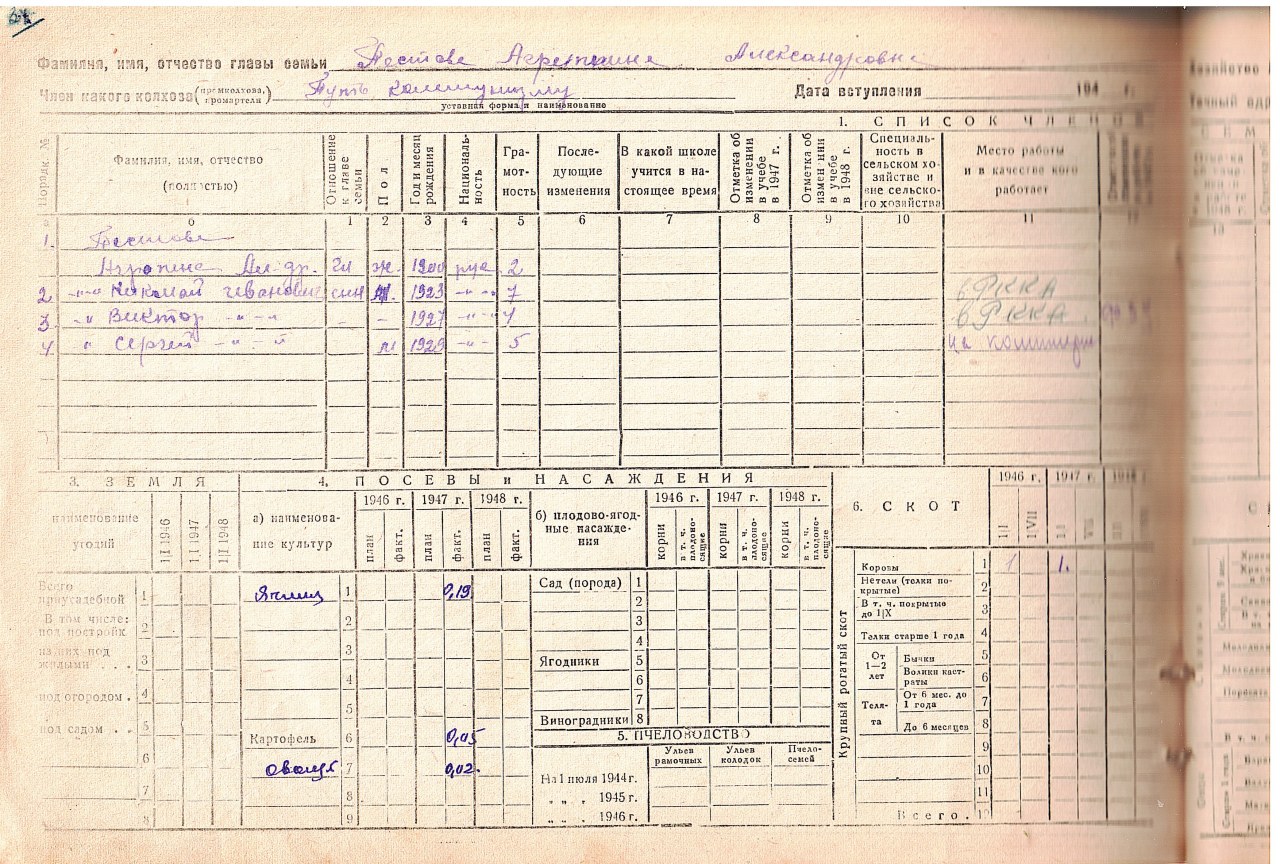 Фамилия, имя, отчество главы семьи Пестова Агрепина Александровна
Член какого колхоза (промколхоза, промартели) Путь Коммунизму
уставная форма и наименование
Дата вступления 194 г.
1. СПИСОК ЧЛЕНОВ
Порядк. №
Фамилия, имя, отчество (полностью)
Отношение к главе семьи
Пол
Год и месяц рождения
Националь-ность
Гра-мот-ность
После-дующие изменения
В какой школе учится в на-стоящее время
Отметка об изменении в учебе в 1947 г.
Отметка об измен нии в учебе в 1948 г.
Специаль-ность в сельском хо-зяйстве и вне сельско-го хозяйства
Место работы и в качестве кого работает
0 1 2 3 4 5 6 7 8 9 10 11
1. Пестова
Агрепина Ал-др. гл ж. 1900 рус 2
2 -"- Николай Иванович сын м. 1923 -"- 7 в РККА
3 -"- Виктор -"- - - 1927 -"- 4 в РККА
4 " Сергей -"- м 1929 -"- 5
3. ЗЕМЛЯ
наименование угодий
1|I 1946
1|I 1947
1|I 1948
Всего приусадебной 1
В том числе: под постройк 2
из них под жилыми . . . 3
под огородом . 4
под садом . . 5
6
7
8
4. ПОСЕВЫ и НАСАЖДЕНИЯ
а) наименова-ние культур
1946 г. 1947 г. 1948 г.
план факт. план факт. план факт.
Ячмень 1 0,19
2
3
4
5
Картофель 6 0,05
Овощи 7 0,02.
8
9
б) плодово-ягод-ные насажде-ния
1946 г. 1947 г. 1948 г.
корни в т. ч. плодоно-сящие корни в т. ч. плодоно-сящие корни в т. ч. плодоно-сящие
Сад (порода) 1
2
3
4
Ягодники 5
6
7
Виноградники 8
5. ПЧЕЛОВОДСТВО
Ульев рамочных
Ульев колодок
Пчело-семей
На 1 июля 1944 г.
" " " 1945 г.
" " " 1946 г.
6. СКОТ
1946 г. 1947 г.
1|I 1|VII 1|I
Крупный рогатый скот
Коровы 1 1 1.
Нетели (телки по-крытые) 2
В т. ч. покрытые до 1|IX 3
Телки старше 1 года 4
От 1—2 лет
Бычки 5
Волики каст-раты 6
Теля-та
От 6 мес. до 1 года 7
До 6 месяцев 8
9
10
11
Всего . 12 1